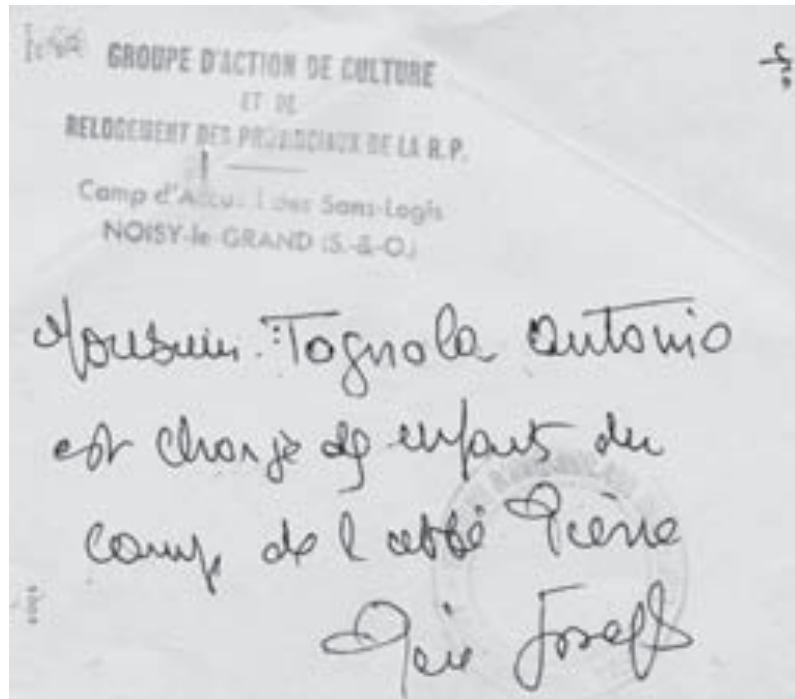 GROUPE D'ACTION DE CULTURE
ET DE
RELOGEMENT DES PROVINCIAUX DE LA R.P.
Camp d'Accueil des Sans-Logis
NOISY-le-GRAND (S.-&-O.)
Monsieur Tognola Antonio
est chargé des enfants du
camp de l abbé Pierre
Père Joseph